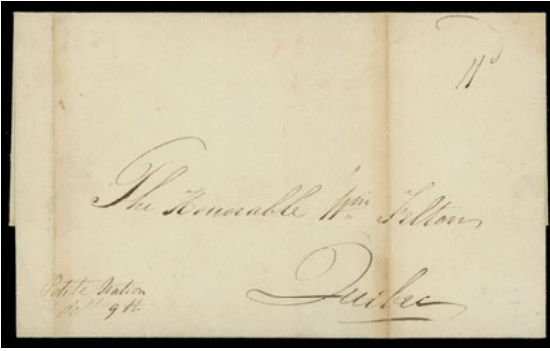 11d
The Honorable Wm Felton
Quebec
Petite Nation
Octr 9th